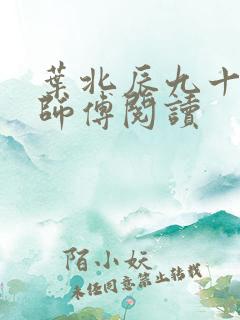 葉北辰九十
師傅閱讀
陌小妖
未经同意禁止转载